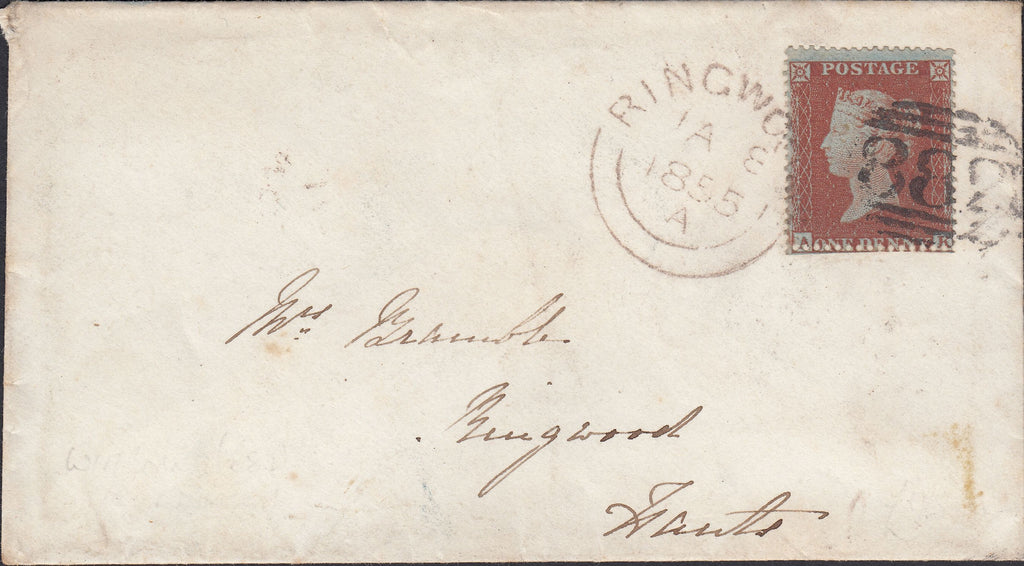 POSTAGE
ONE PENNY
A
RINGWO
JA
8
1855
A
Mrs. Bramble
Ringwood
Hants